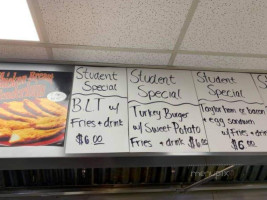 Student
Special
BLT w/
Fries + drink
$6.00
Student
Special
Turkey Burger
w/ Sweet Potato
Fries + drink $6
Student
Special
Taylor ham or bacon
+ egg sandwich
w/ Fries + drink
$6.00